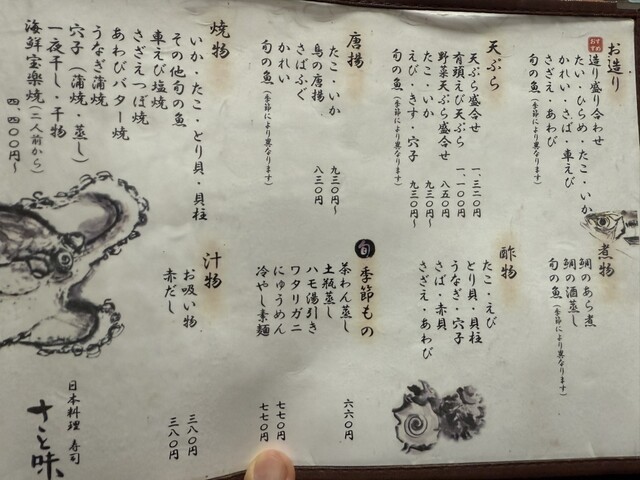 お造り
おすすめ
造り盛り合わせ
たい・ひらめ・たこ・いか
かれい・さば・車えび
さざえ・あわび
旬の魚(季節により異なります)
天ぷら
天ぷら盛合せ 一、三二〇円
有頭えび天ぷら 一、一〇〇円
野菜天ぷら盛合せ 八五〇円
たこ・いか 九三〇円~
えび・きす・穴子 九三〇円
旬の魚(季節により異なります)
唐揚
たこ・いか 九三〇円~
鳥の唐揚 八三〇円
さばふぐ
かれい
旬の魚(季節により異なります)
焼物
いか・たこ・とり貝・貝柱
その他旬の魚
車えび塩焼
さざえつぼ焼
あわびバター焼
うなぎ蒲焼
穴子(蒲焼・蒸し)
一夜干し・干物
海鮮宝楽焼(二人前から)
四、四〇〇円~
煮物
鯛のあら煮
鯛の酒蒸し
旬の魚(季節により異なります)
酢物
たこ・えび
とり貝・貝柱
うなぎ・穴子
さば・赤貝
さざえ・あわび
旬 季節もの
茶わん蒸し 六六〇円
土瓶蒸し
ハモ湯引き
ワタリガニ
にゅうめん 七七〇円
冷やし素麺 七七〇円
汁物
お吸い物 三八〇円
赤だし 三八〇円
日本料理 寿司
さと味